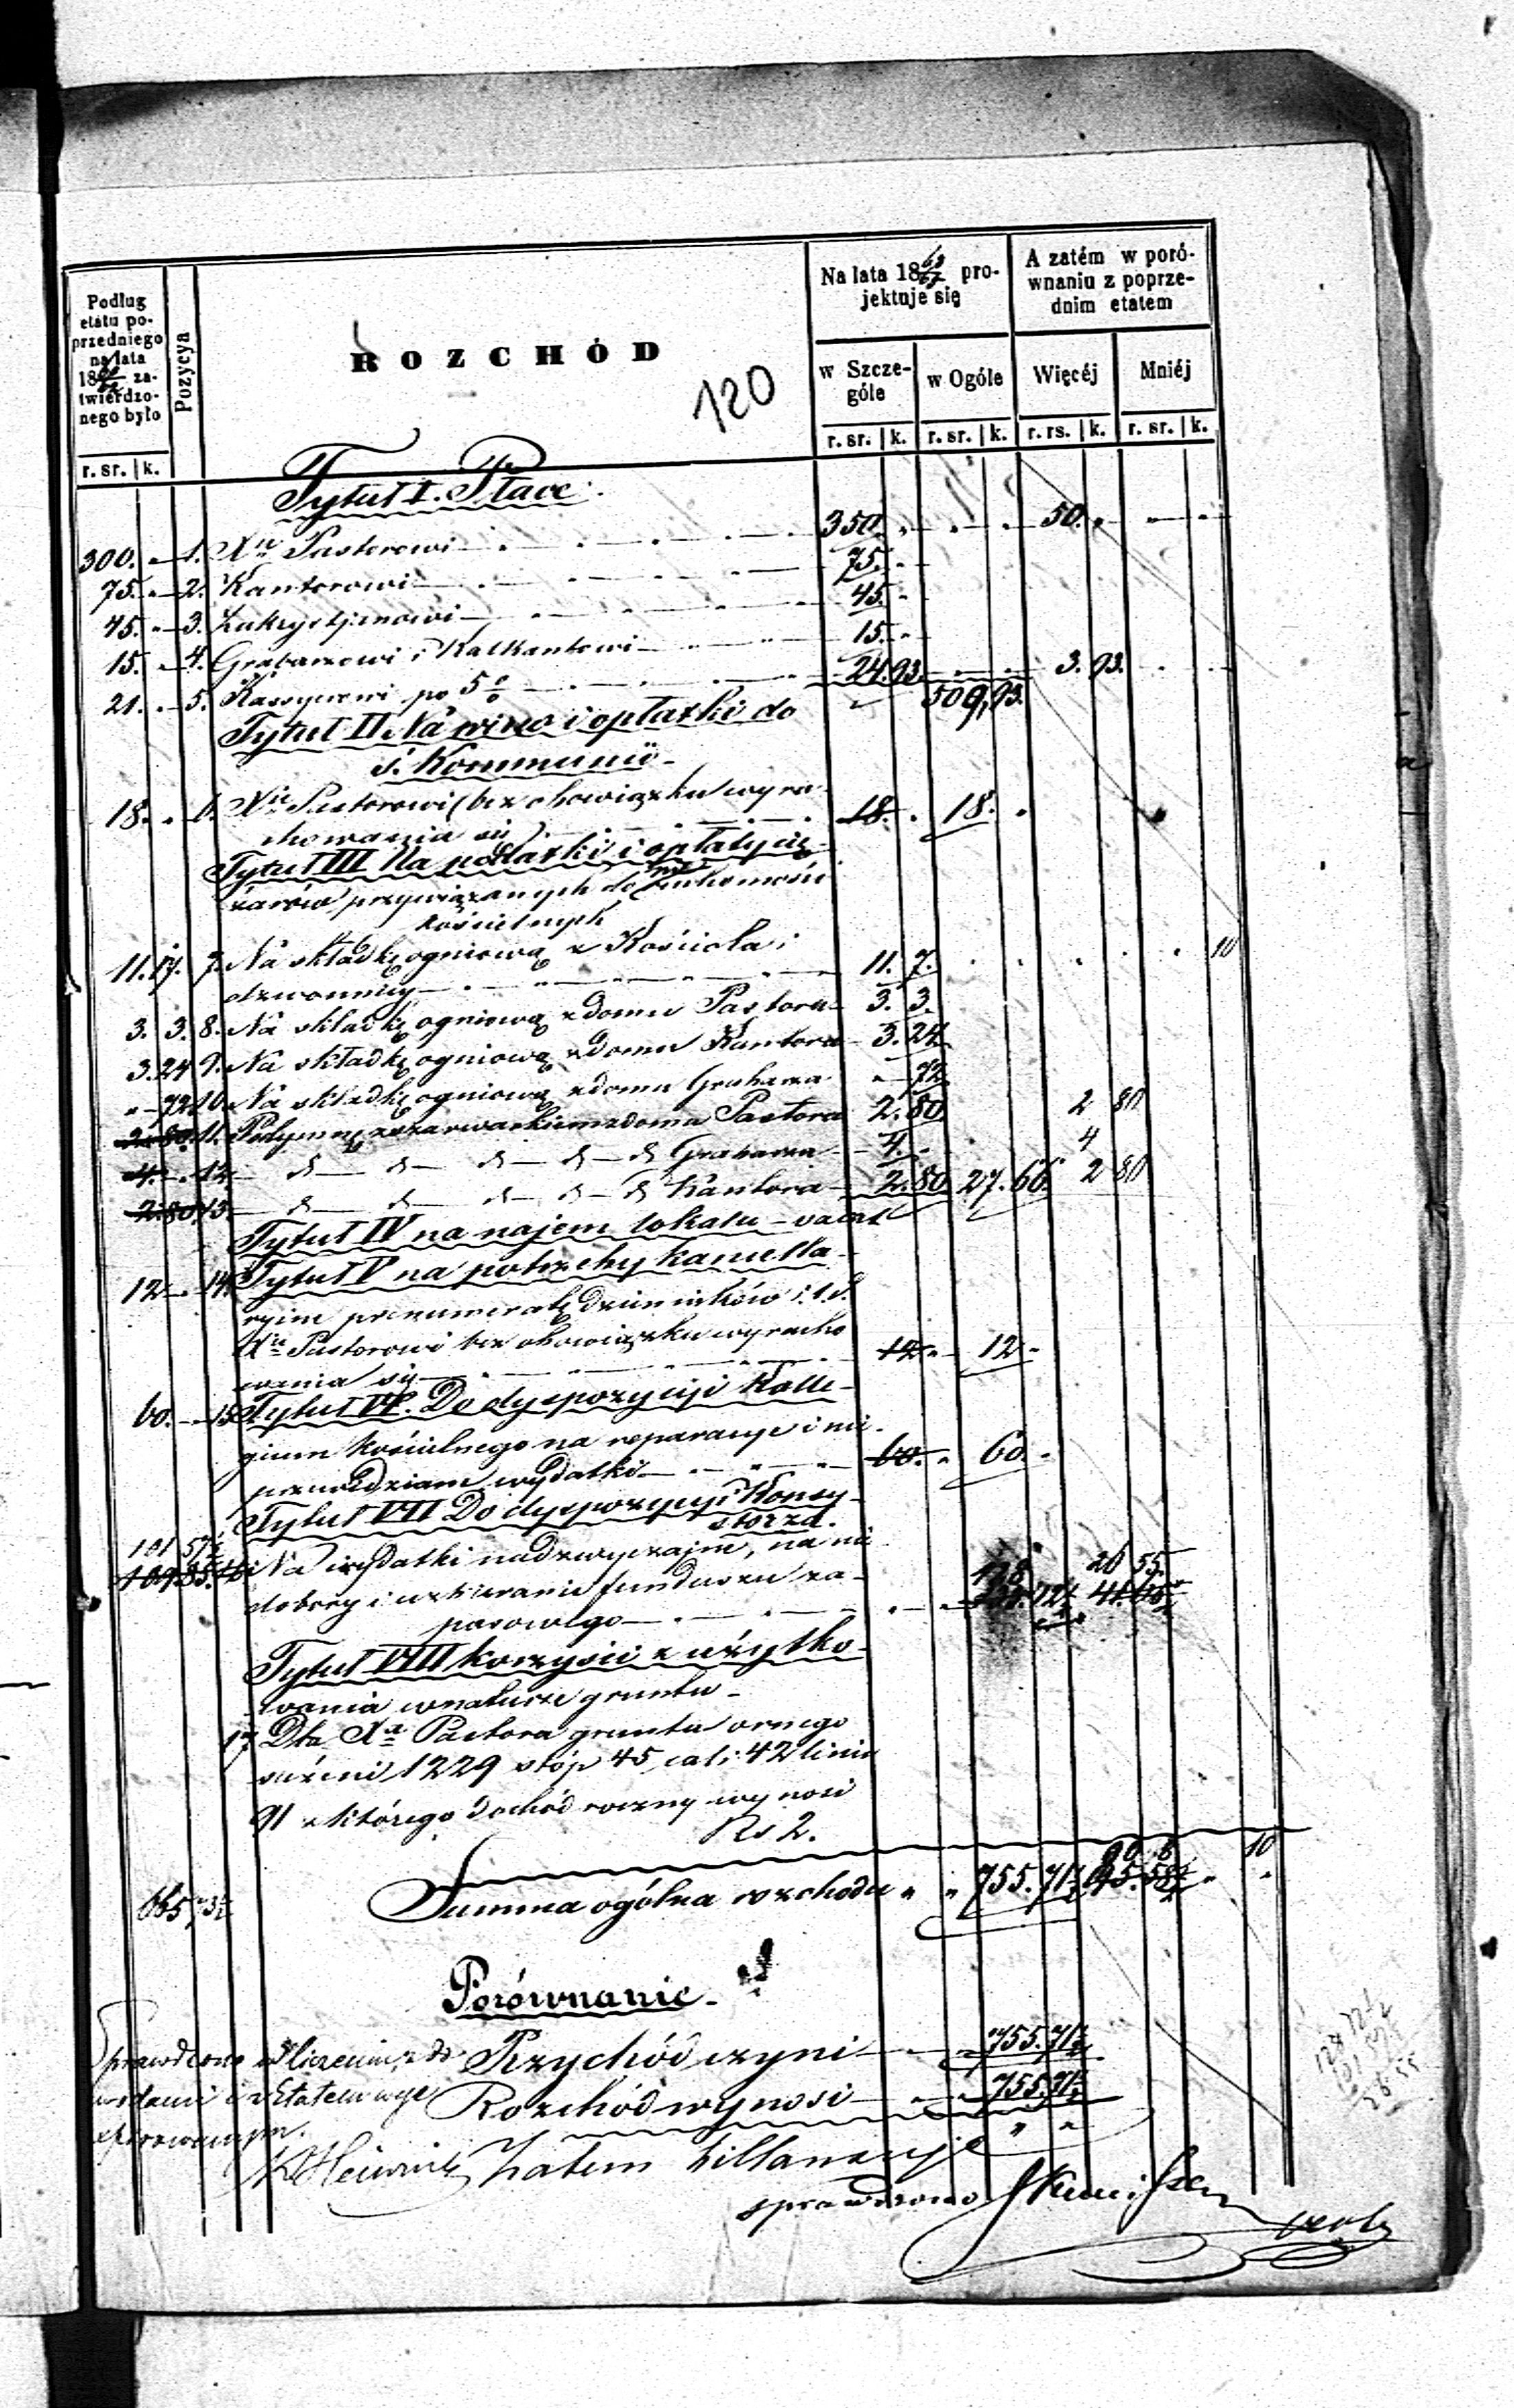 Podług etatu poprzedniego na lata 18 60/62 zatwierdzonego było
Pozycya
ROZCHÓD
120
Na lata 18 63/67 projektuje się
A zatém w porównaniu z poprzednim etatem
w Szczególe
w Ogóle
Więcéj
Mniéj
r. sr. k.
r. sr. k. r. sr. k. r. rs. k. r. sr. k.
Tytuł I. Płace.
300. „ 1. Xu Pastorowi 350. „ „ „ 50. „ „ „
75. „ 2. Kantorowi 75. „
45. „ 3. Zakrystjanowi 45. „
15. „ 4. Grabarzowi i Kalkantowi 15. „
21. „ 5. Kassyerowi po 5% 24. 93. 509,93. 3. 93.
Tytuł II Na wino i opłatki do
ś. Kommunii
18. „ 6. Xu Pastorowi (bez obowiązku wyra-
chowania się) 18. „ 18. „
Tytuł III Na podatki i opłaty cię-
żarów przywiązanych do nieruchomości
kościelnych
11. 17. 7. Na składkę ogniową z Kościoła i
dzwonnicy 11. 7. 10
3. 3. 8. Na składkę ogniową z domu Pastora 3. 3.
3. 24 9. Na składkę ogniową z domu Kantora 3. 24.
„ 72 10. Na składkę ogniową z domu Grabarza „ 72
2. 80. 11. Podymnę z szarwarkiem z domu Pastora 2. 80 2 80
4. „ 12. d d d d d Grabarza 4. „ 4
2. 80 13. d d d d d Kantora 2. 80 27. 66 2 80
Tytuł IV na najem lokalu – vacat
12 „ 14. Tytuł V na potrzeby kancella-
ryine prenumeratę dzienników i. t. d.
Xu Pastorowi bez obowiązku wyracho
wania się 12 „ 12 „
60. „ 15 Tytuł VI. Do dyspozycyi Kolle-
gium Kościelnego na reparacye i nie-
przewidziane wydatki 60. „ 60. „
Tytuł VII Do dyspozycyi Konsy-
storza.
101 57½
109 85. 16 Na wydatki nadzwyczajne, na nie
dobory i uzbieranie funduszu za-
pasowego 128 12½ 26 55
Tytuł VIII korzyści z użytko-
wania w naturze gruntu
17. Dla Xa Pastora gruntu ornego
sążni 1229 stóp 45 cali 42 linii
91 z którego dochód roczny wynosi
Rs 2.
665 73½ Summa ogólna rozchodu „ „ 755. 71½ 90 8 10
Porównanie
Przychód czyni 755. 71½
Rozchód wynosi 755. 71½
Zatem billansuje „ „
Sprawdzono
sprawdzono